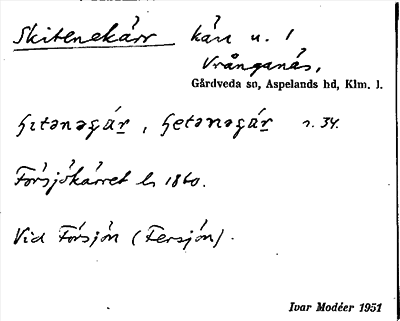 Skitenekärr kärr u. 1
Vrånganäs,
Gårdveda sn, Aspelands hd, Klm. l.
s. 34.
Försjökärret l 1860.
Vid Försjön (Fersjön).
Ivar Modéer 1951